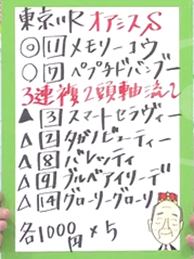 東京11R オアシスS
◎ 11 メモリーコウ
○ 7 ペプチドバンブー
3連複2頭軸流し
▲ 3 スマートセラヴィー
△ 2 タガノビューティー
△ 8 バレッティ
△ 9 ブルベアイリーデ
△ 14 グローリーグローリ
各1000円×5